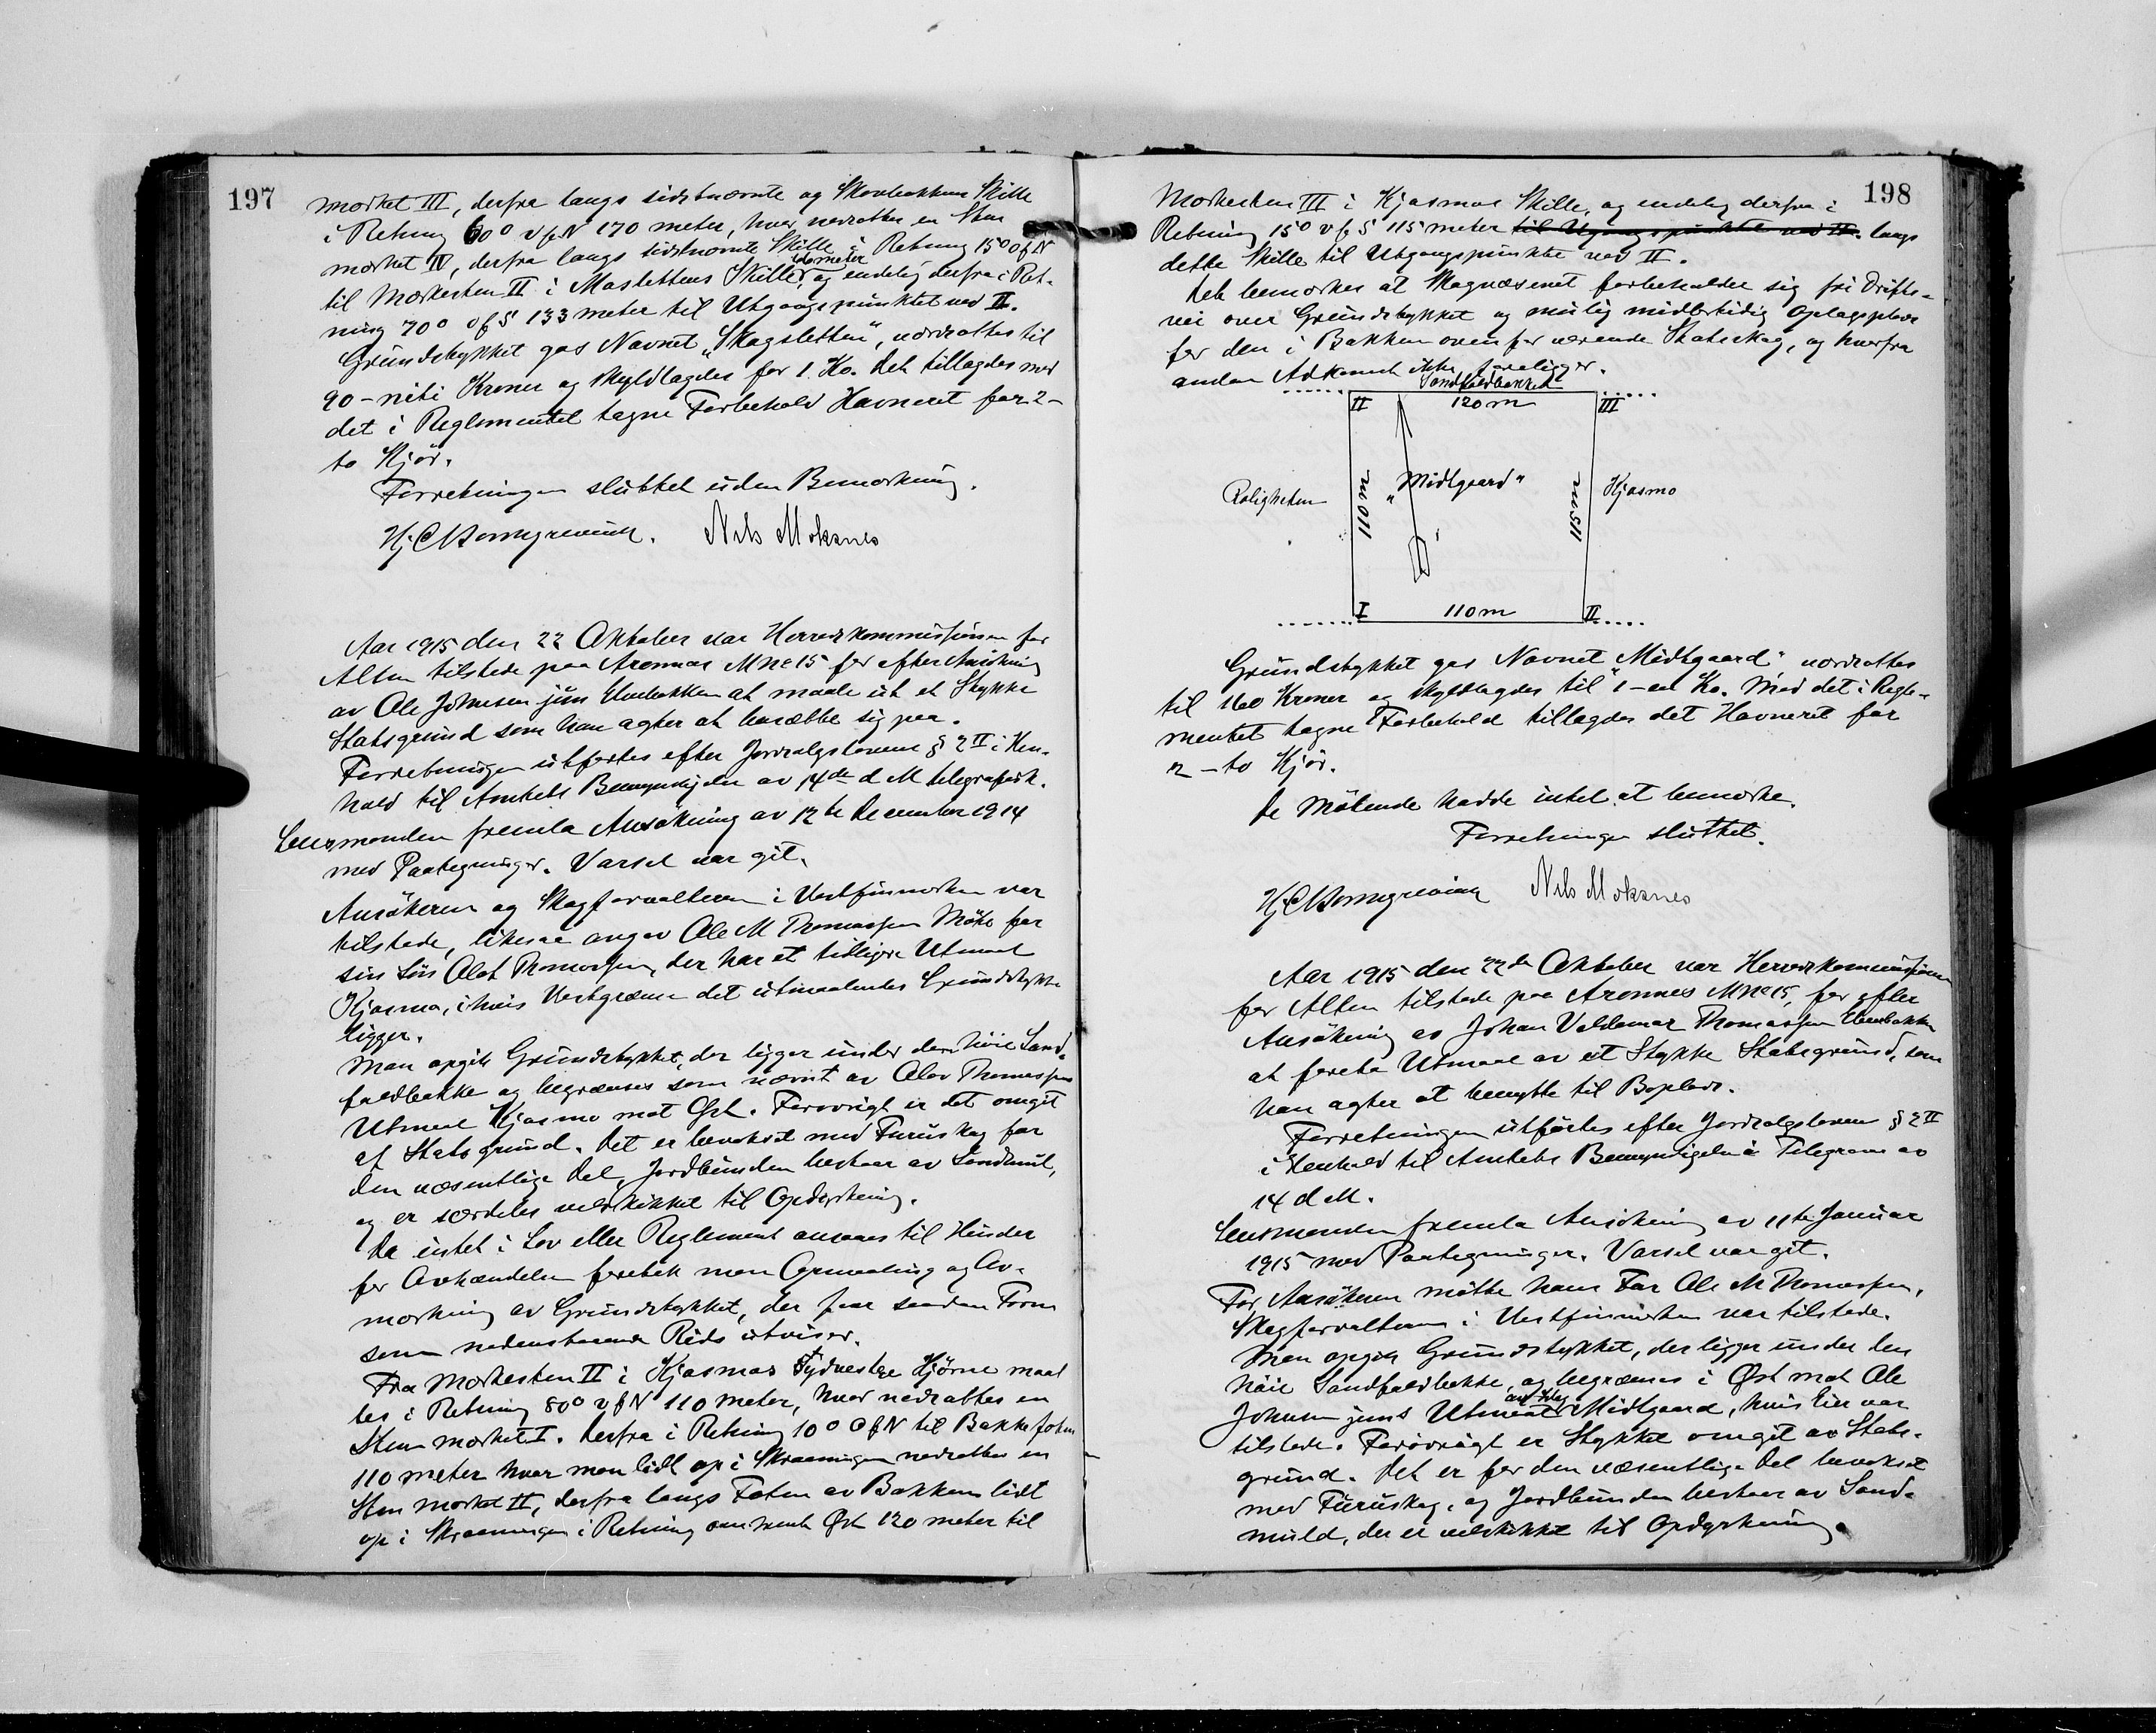 197
mærket III, derfra langs sidstnævnte og Skovbakkens Skille
i Retning 60° v f N 170 meter, hvor nedsattes en Sten
mærket IV, derfra langs sidstnævnte Skille i Retning 15° O f N
til Mærkesten II i Maslettens Skille, og endelig derfra i Ret-
ning 70° O f S 133 meter til Utgangspunktet ved II.
Grundstykket gas Navnet „Skogsletten", værdsattes til
90 - niti Kroner og skyldlagdes for 1. Ko. Det tillagdes med
det i Reglementet tagne Forbehold Havneret for 2 -
to Kjør.
Forretningen sluttet uden Bemærkning.
Nils Moksnes
Aar 1915 den 22 Oktober var Herredskommissionen for
Alten tilstede paa Aronnes M No 15 for efter Ansökning
av Ole Johnsen jun Elvebakken at maale ut et Stykke
Statsgrund som han agter at bosætte sig paa.
Forretningen utførtes efter Jordsalgslovens § 2 II i Hen-
hold til Amtets Bemyndigelse av 14de d M telegrafisk.
Lensmanden fremla Ansökning av 12te December 1914
med Paategninger. Varsel var git.
Ansökeren og Skogforvalteren i Vestfinmarken var
tilstede, likesaa angav Ole M Thomassen Møte for
sin Søn Olaf Thomassen, der har et tidligere Utmaal
Kjosmo, i hvis Vestgrænse det utmaalendes Grundstykke
ligger.
Man opgik Grundstykket, der ligger under den høie Sand-
faldbakke og begrænses som nævnt av Olav Thomassens
Utmaal Kjosmo mot Øst. Forøvrigt er det omgit
af Statsgrund. Det er bevokset med Furuskog for
den væsentlige Del, Jordbunden bestaar av Sandmuld,
og er særdeles velskikket til Opdyrkning.
Da intet i Lov eller Reglement ansaaes til Hinder
for Avhændelsen foretok man Opmaaling og Av-
mærkning av Grundstykket, der faar saadan Form
som nedenstaaende Rids utviser.
Fra Mærkesten II i Kjosmos Sydvestre Hjørne maal
tes i Retning 80° v f N 110 meter, hvor nedsattes en
Sten mærket I. Derfra i Retning 10° O f N til Bakkefoten
110 meter hvor man lidt op i Skraaningen nedsatte en
Sten mærket II, derfra langs Foten av Bakken lidt
op i Skraaningen i Retning omtrent Øst 120 meter til
198
Mærkesten III i Kjosmos Skille, og endelig derfra i
Retning 15° v f S 115 meter til Utgangspunktet ved II. langs
dette Skille til Utgangspunktet ved II.
Det bemærkes at Skogvæsenet forbeholder sig fri Drifts-
vei over Grundstykket og mulig midlertidig Oplagsplads
for den i Bakken ovenfor værende Statsskog, og hvorfra
anden Adkomst ikke foreligger.
Sandfaldbakken
II 120 m III
Roligheten 110 m „Midtgaard" 115 m Kjosmo
I 110 m II
Grundstykket gas Navnet „Midtgaard" værdsattes
til 160 Kroner og skyldlagdes til 1 - en Ko. Med det i Regle-
mentet tagne Forbehold tillagdes det Havneret for
2 - to Kjør.
De Mötende hadde intet at bemærke.
Forretningen sluttet.
Nils Moksnes
Aar 1915 den 22de Oktober var Herredskommissionen
for Alten tilstede paa Aronnes M No 15, for efter
Ansökning av Johan Valdemar Thomassen Elvebakken
at foreta Utmaal av et Stykke Statsgrund, som
han agter at benytte til Boplads.
Forretningen utførtes efter Jordsalgsloven § 2 II
i Henhold til Amtets Bemyndigelse i Telegram av
14 d M.
Lensmanden fremla Ansökning av 11te Januar
1915 med Paategninger. Varsel var git.
For Ansökeren møtte hans Far Ole M Thomassen.
Skogforvalteren i Vestfinmarken var tilstede.
Man opgik Grundstykket, der ligger under den
høie Sandfaldbakke, og begrænses i Øst mot Ole
Johnsen juns Utmaal Midtgaard, hvis Eier var
tilstede. Forøvrigt er Stykket omgit av Stats-
grund. Det er for den væsentlige Del bevokset
med Furuskog, og Jordbunden bestaar av Sand-
muld, der er velskikket til Opdyrkning.